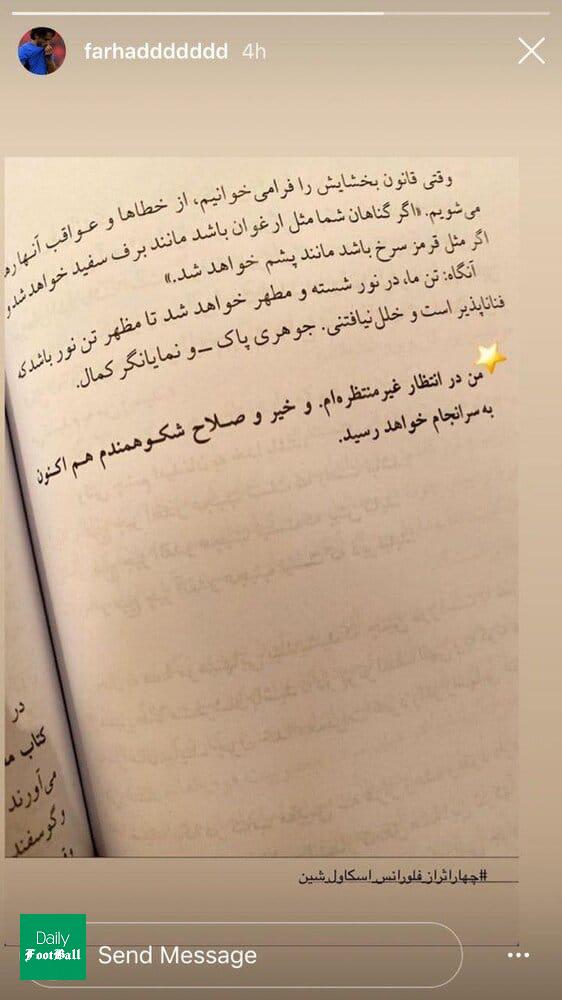 farhaddddddd 4h
وقتی قانون بخشایش را فرامی‌خوانیم، از خطاها و عواقب آنها
می‌شویم. «اگر گناهان شما مثل ارغوان باشد مانند برف سفید خواهد شد و
اگر مثل قرمز سرخ باشد مانند پشم خواهد شد.»
آنگاه: تن ما، در نور شسته و مطهر خواهد شد تا مظهر تن نور باشد که
فناناپذیر است و خلل‌نیافتنی. جوهری پاک ـ و نمایانگر کمال.
من در انتظار غیرمنتظره‌ام. و خیر و صلاح شکوهمندم هم اکنون
به سرانجام خواهد رسید.
در
کتاب
می‌آورند
وگوسفند
#چهاراثراز_فلورانس_اسکاول_شین
Daily
FootBall
Send Message